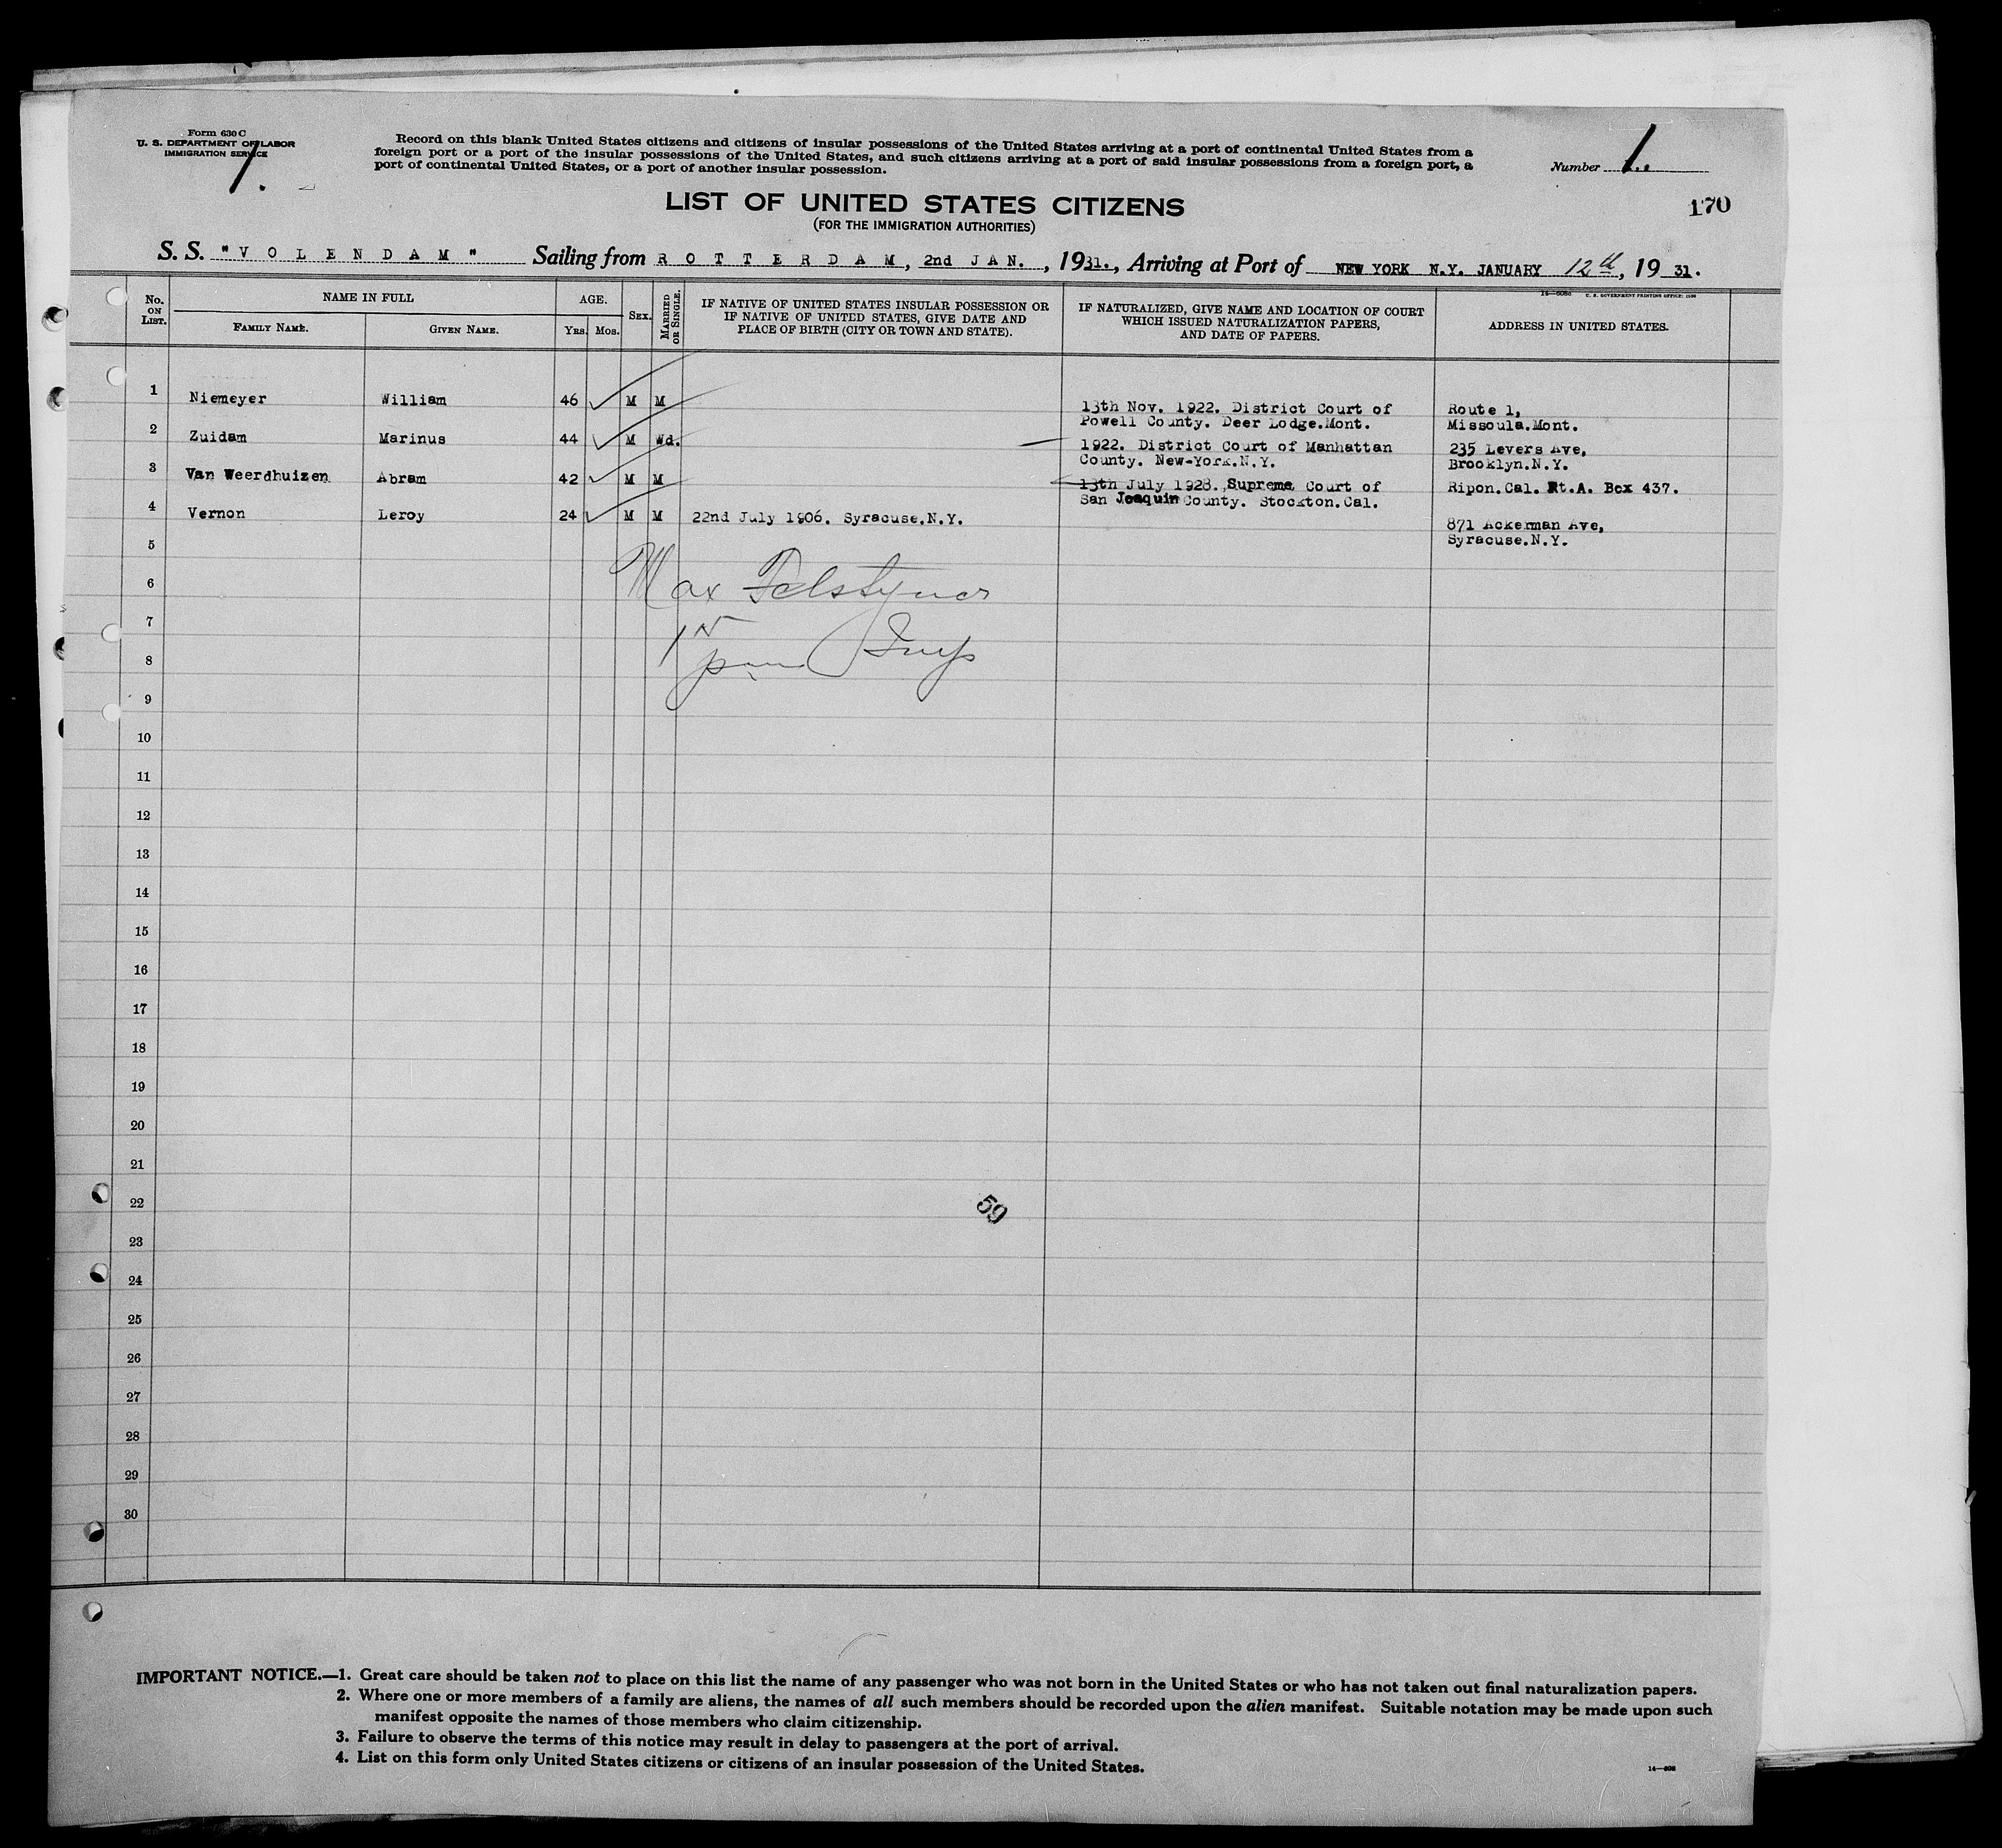 Form 630 C
U. S. DEPARTMENT OF LABOR
IMMIGRATION SERVICE
1.
Record on this blank United States citizens and citizens of insular possessions of the United States arriving at a port of continental United States from a
foreign port or a port of the insular possessions of the United States, and such citizens arriving at a port of said insular possessions from a foreign port, a
port of continental United States, or a port of another insular possession.
Number 1.
170
LIST OF UNITED STATES CITIZENS
(FOR THE IMMIGRATION AUTHORITIES)
S. S. "VOLENDAM" Sailing from ROTTERDAM, 2nd JAN., 1931., Arriving at Port of NEW YORK N.Y. JANUARY 12th, 19 31.
U. S. GOVERNMENT PRINTING OFFICE: 1930
No. ON LIST. NAME IN FULL FAMILY NAME. GIVEN NAME. AGE. YRS. MOS. SEX. MARRIED OR SINGLE. IF NATIVE OF UNITED STATES INSULAR POSSESSION OR IF NATIVE OF UNITED STATES, GIVE DATE AND PLACE OF BIRTH (CITY OR TOWN AND STATE). IF NATURALIZED, GIVE NAME AND LOCATION OF COURT WHICH ISSUED NATURALIZATION PAPERS, AND DATE OF PAPERS. ADDRESS IN UNITED STATES.
1 Niemeyer William 46 M M 13th Nov. 1922. District Court of Route 1,
Powell County. Deer Lodge.Mont. Missoula.Mont.
2 Zuidam Marinus 44 M Wd. 1922. District Court of Manhattan 235 Levers Ave,
County. New-York.N.Y. Brooklyn.N.Y.
3 Van Weerdhuizen Abram 42 M M 13th July 1928. Supreme Court of Ripon.Cal. Rt.A. Box 437.
San Joaquin County. Stockton.Cal.
4 Vernon Leroy 24 M M 22nd July 1906. Syracuse.N.Y. 871 Ackerman Ave,
Syracuse.N.Y.
5
6 Max
7
8 Insp
9
10
11
12
13
14
15
16
17
18
19
20
21
22
59
23
24
25
26
27
28
29
30
IMPORTANT NOTICE.—1. Great care should be taken not to place on this list the name of any passenger who was not born in the United States or who has not taken out final naturalization papers.
2. Where one or more members of a family are aliens, the names of all such members should be recorded upon the alien manifest. Suitable notation may be made upon such
manifest opposite the names of those members who claim citizenship.
3. Failure to observe the terms of this notice may result in delay to passengers at the port of arrival.
4. List on this form only United States citizens or citizens of an insular possession of the United States.